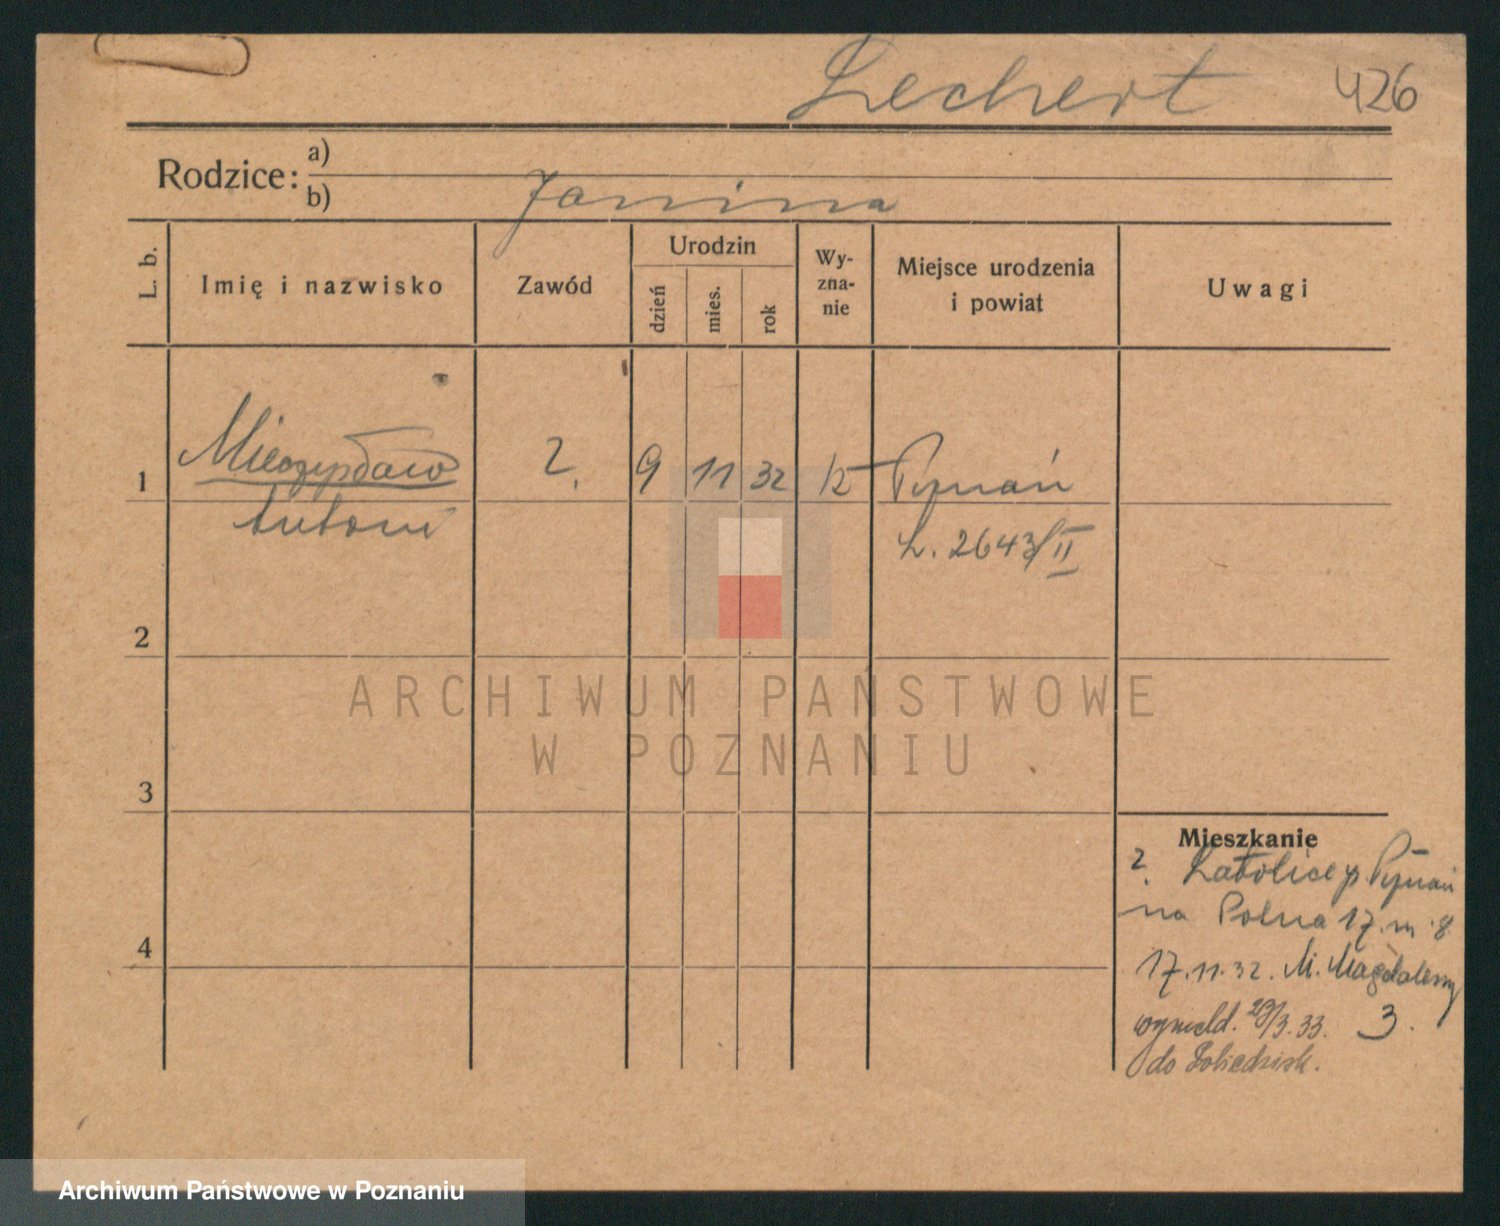 Lechert 426
Rodzice: a)
b) Janina
L. b. Imię i nazwisko Zawód Urodzin dzień mies. rok Wy-zna-nie Miejsce urodzenia i powiat Uwagi
1 Mieczysław 2. 9 11 32 K Poznań
Antoni L. 2643/II
2
ARCHIWUM PAŃSTWOWE
W POZNANIU
3
Mieszkanie
2. Poznań
4
na Polna 17. m 8.
17.11.32. M. Magdaleny
wymeld. 29/3.33. 3.
do Pobiedzisk.
Archiwum Państwowe w Poznaniu